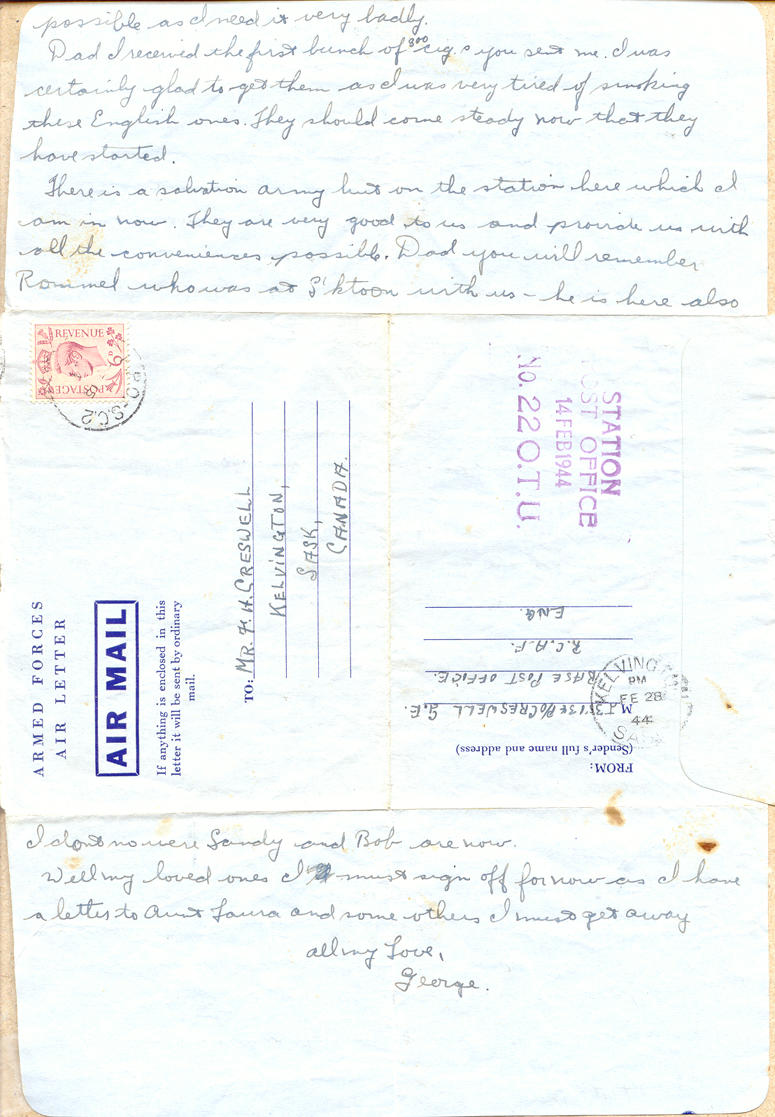 possible as I need it very badly.
Dad I received the first bunch of 300 cig.s you sent me. I was
certainly glad to get them as I was very tired of smoking
these English ones. They should come steady now that they
have started.
There is a salvation army hut on the station here which I
am in now. They are very good to us and provide us with
all the conveniences possible. Dad you will remember
Rommel who was at S'ktoon with us - he is here also
REVENUE
POSTAGE
ARMED FORCES
AIR LETTER
AIR MAIL
If anything is enclosed in this
letter it will be sent by ordinary
mail.
TO: MR. F. H. CRESWELL
KELVINGTON,
SASK,
CANADA.
STATION
POST OFFICE
14 FEB 1944
No. 22 O.T.U.
FROM:
(Sender's full name and address)
CRESWELL G.E.
BASE POST OFFICE.
R.C.A.F.
ENG.
KELVINGTON
PM
FE 28
44
SASK
I dont no were Sandy and Bob are now.
Well my loved ones I must sign off for now as I have
a letter to Aunt Laura and some others I must get away
all my Love,
George.